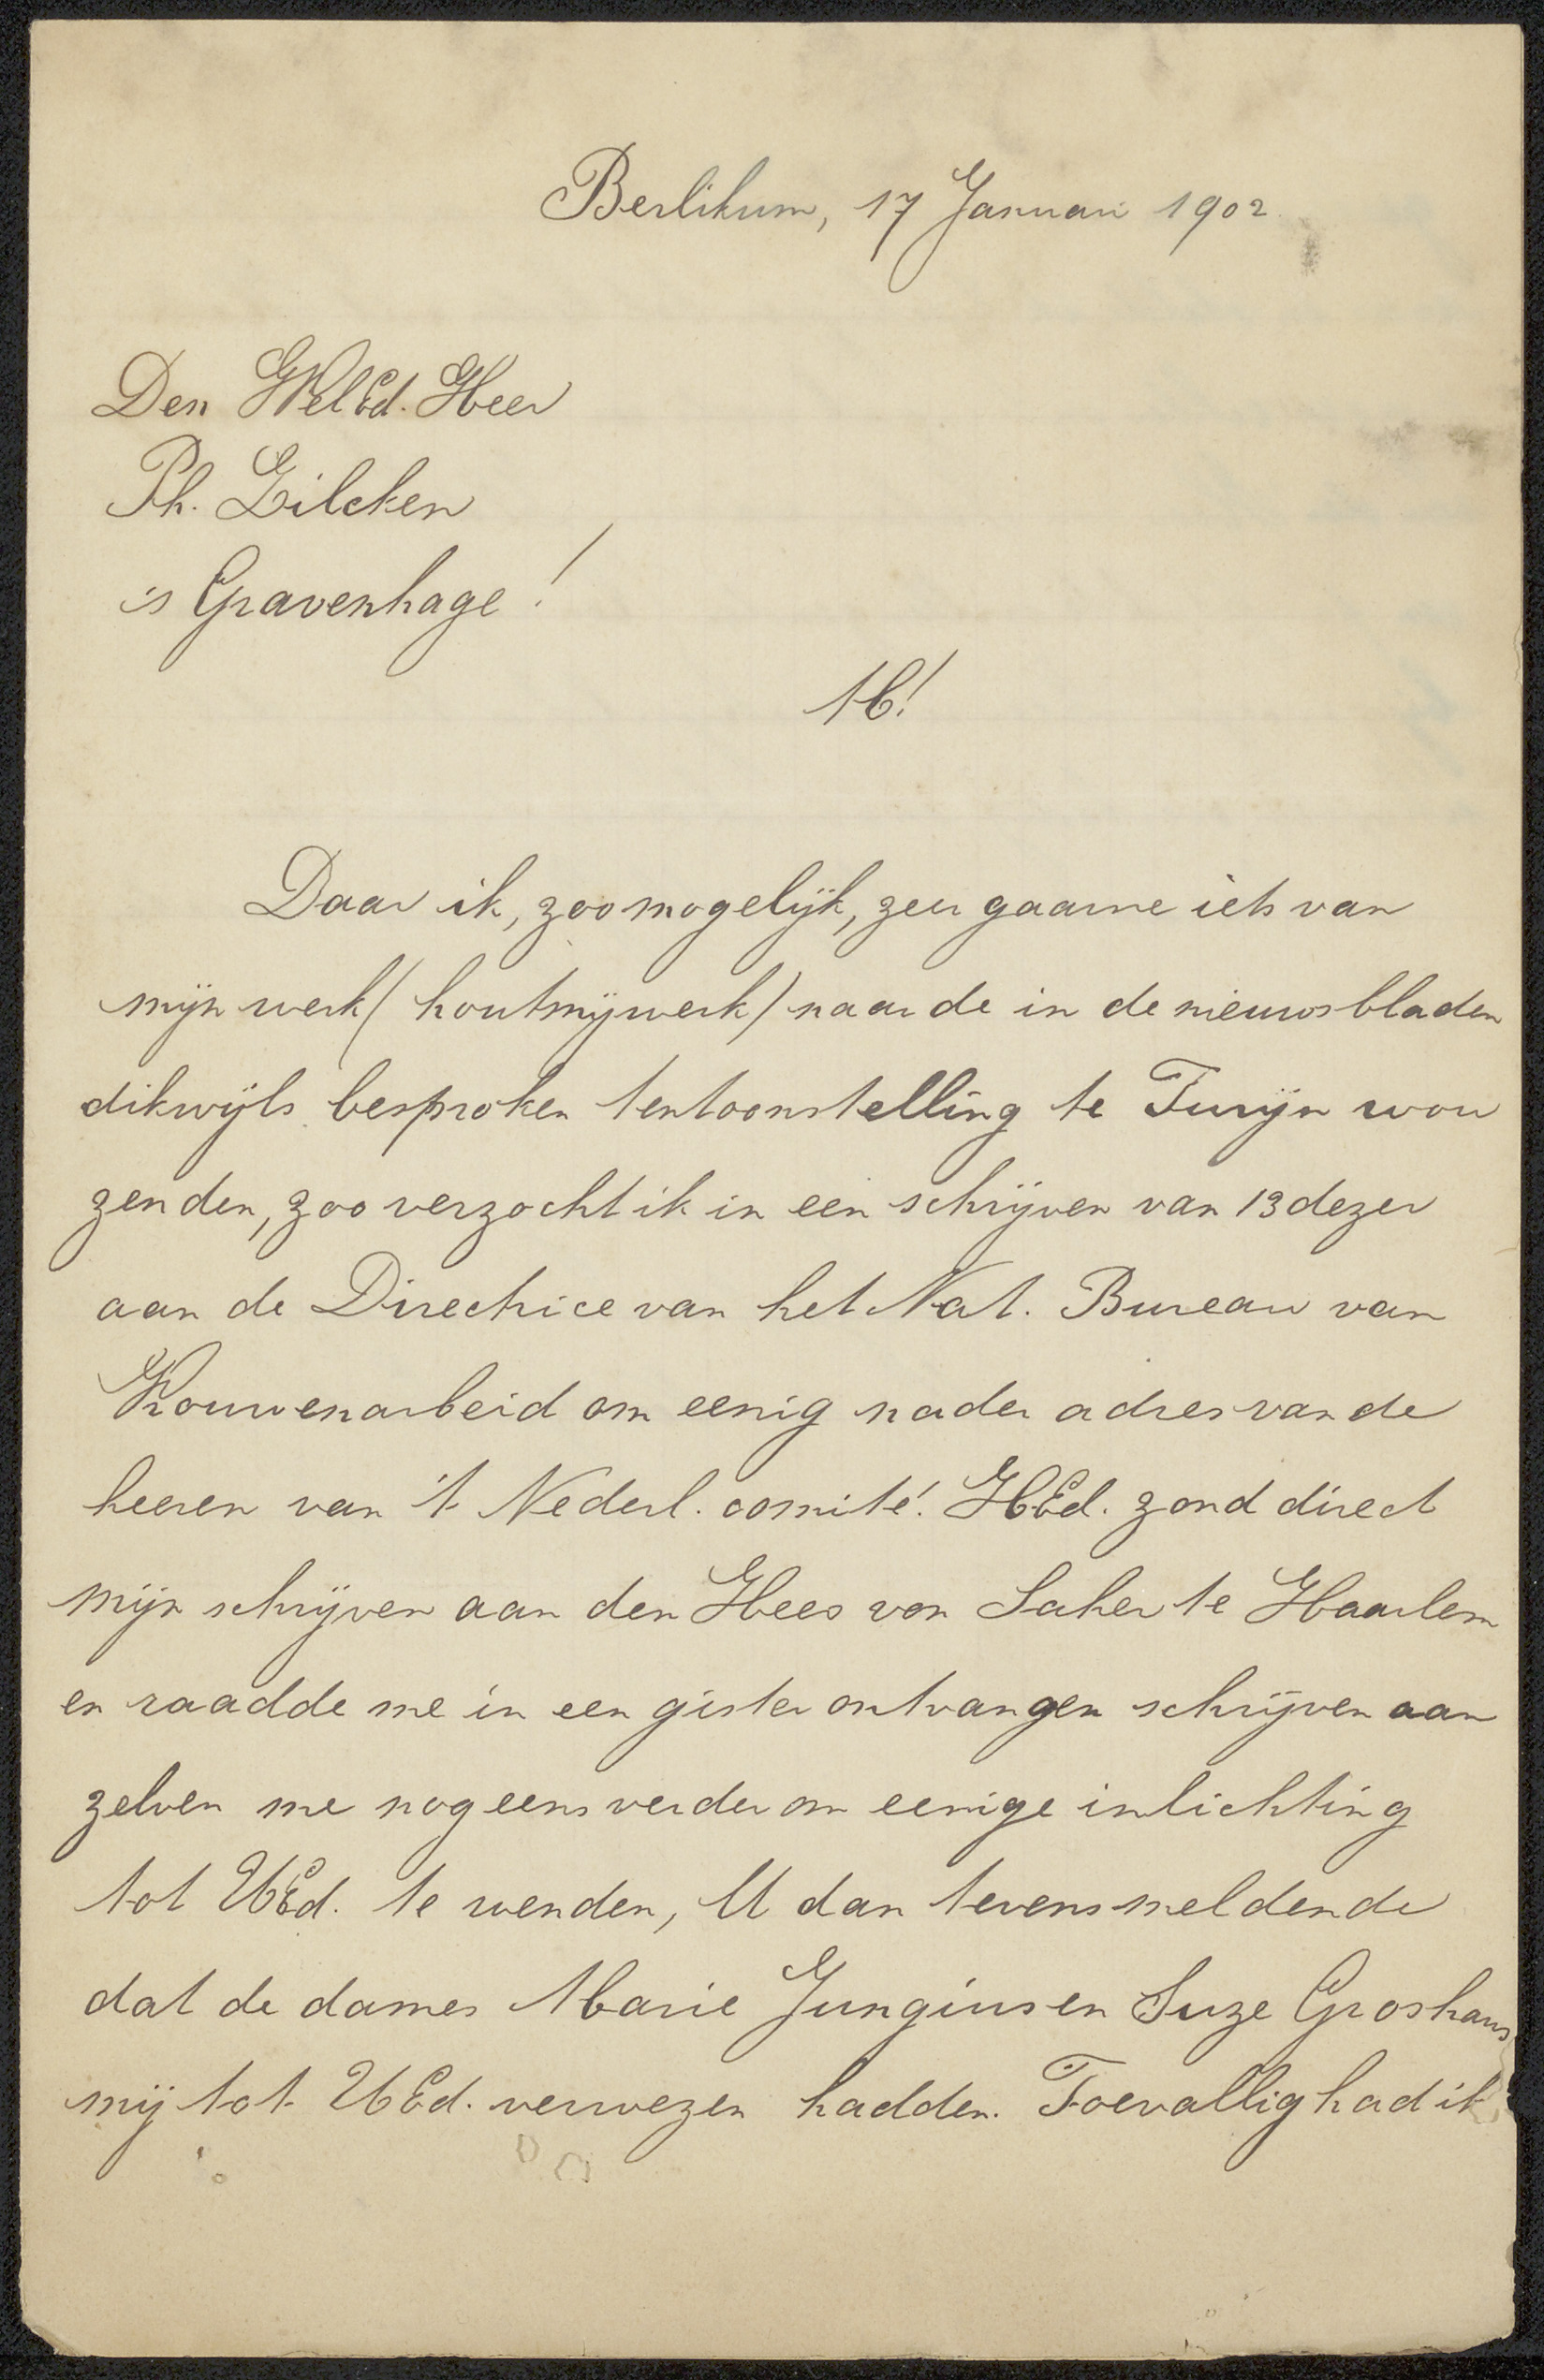 Berlikum, 17 Januari 1902
Den WelEd. Heer
Ph. Zilcken
's Gravenhage!
M!
Daar ik, zoo mogelijk, zeer gaarne iets van
mijn werk (houtsnijwerk) naar de in de nieuwsbladen
dikwijls besproken tentoonstelling te Turijn wou
zenden, zoo verzocht ik in een schrijven van 13 dezer
aan de Directrice van het Nat. Bureau van
Vrouwenarbeid om eenig nader adres van de
heeren van 't Nederl. comité! HEd. zond direct
mijn schrijven aan den Heer von Saher te Haarlem
en raadde me in een gister ontvangen schrijven aan
zelven me nog eens verder om eenige inlichting
tot UEd. te wenden, U dan tevens meldende
dat de dames Marie Jungius en Suze Groshans
mij tot UEd. verwezen hadden. Toevallig had ik